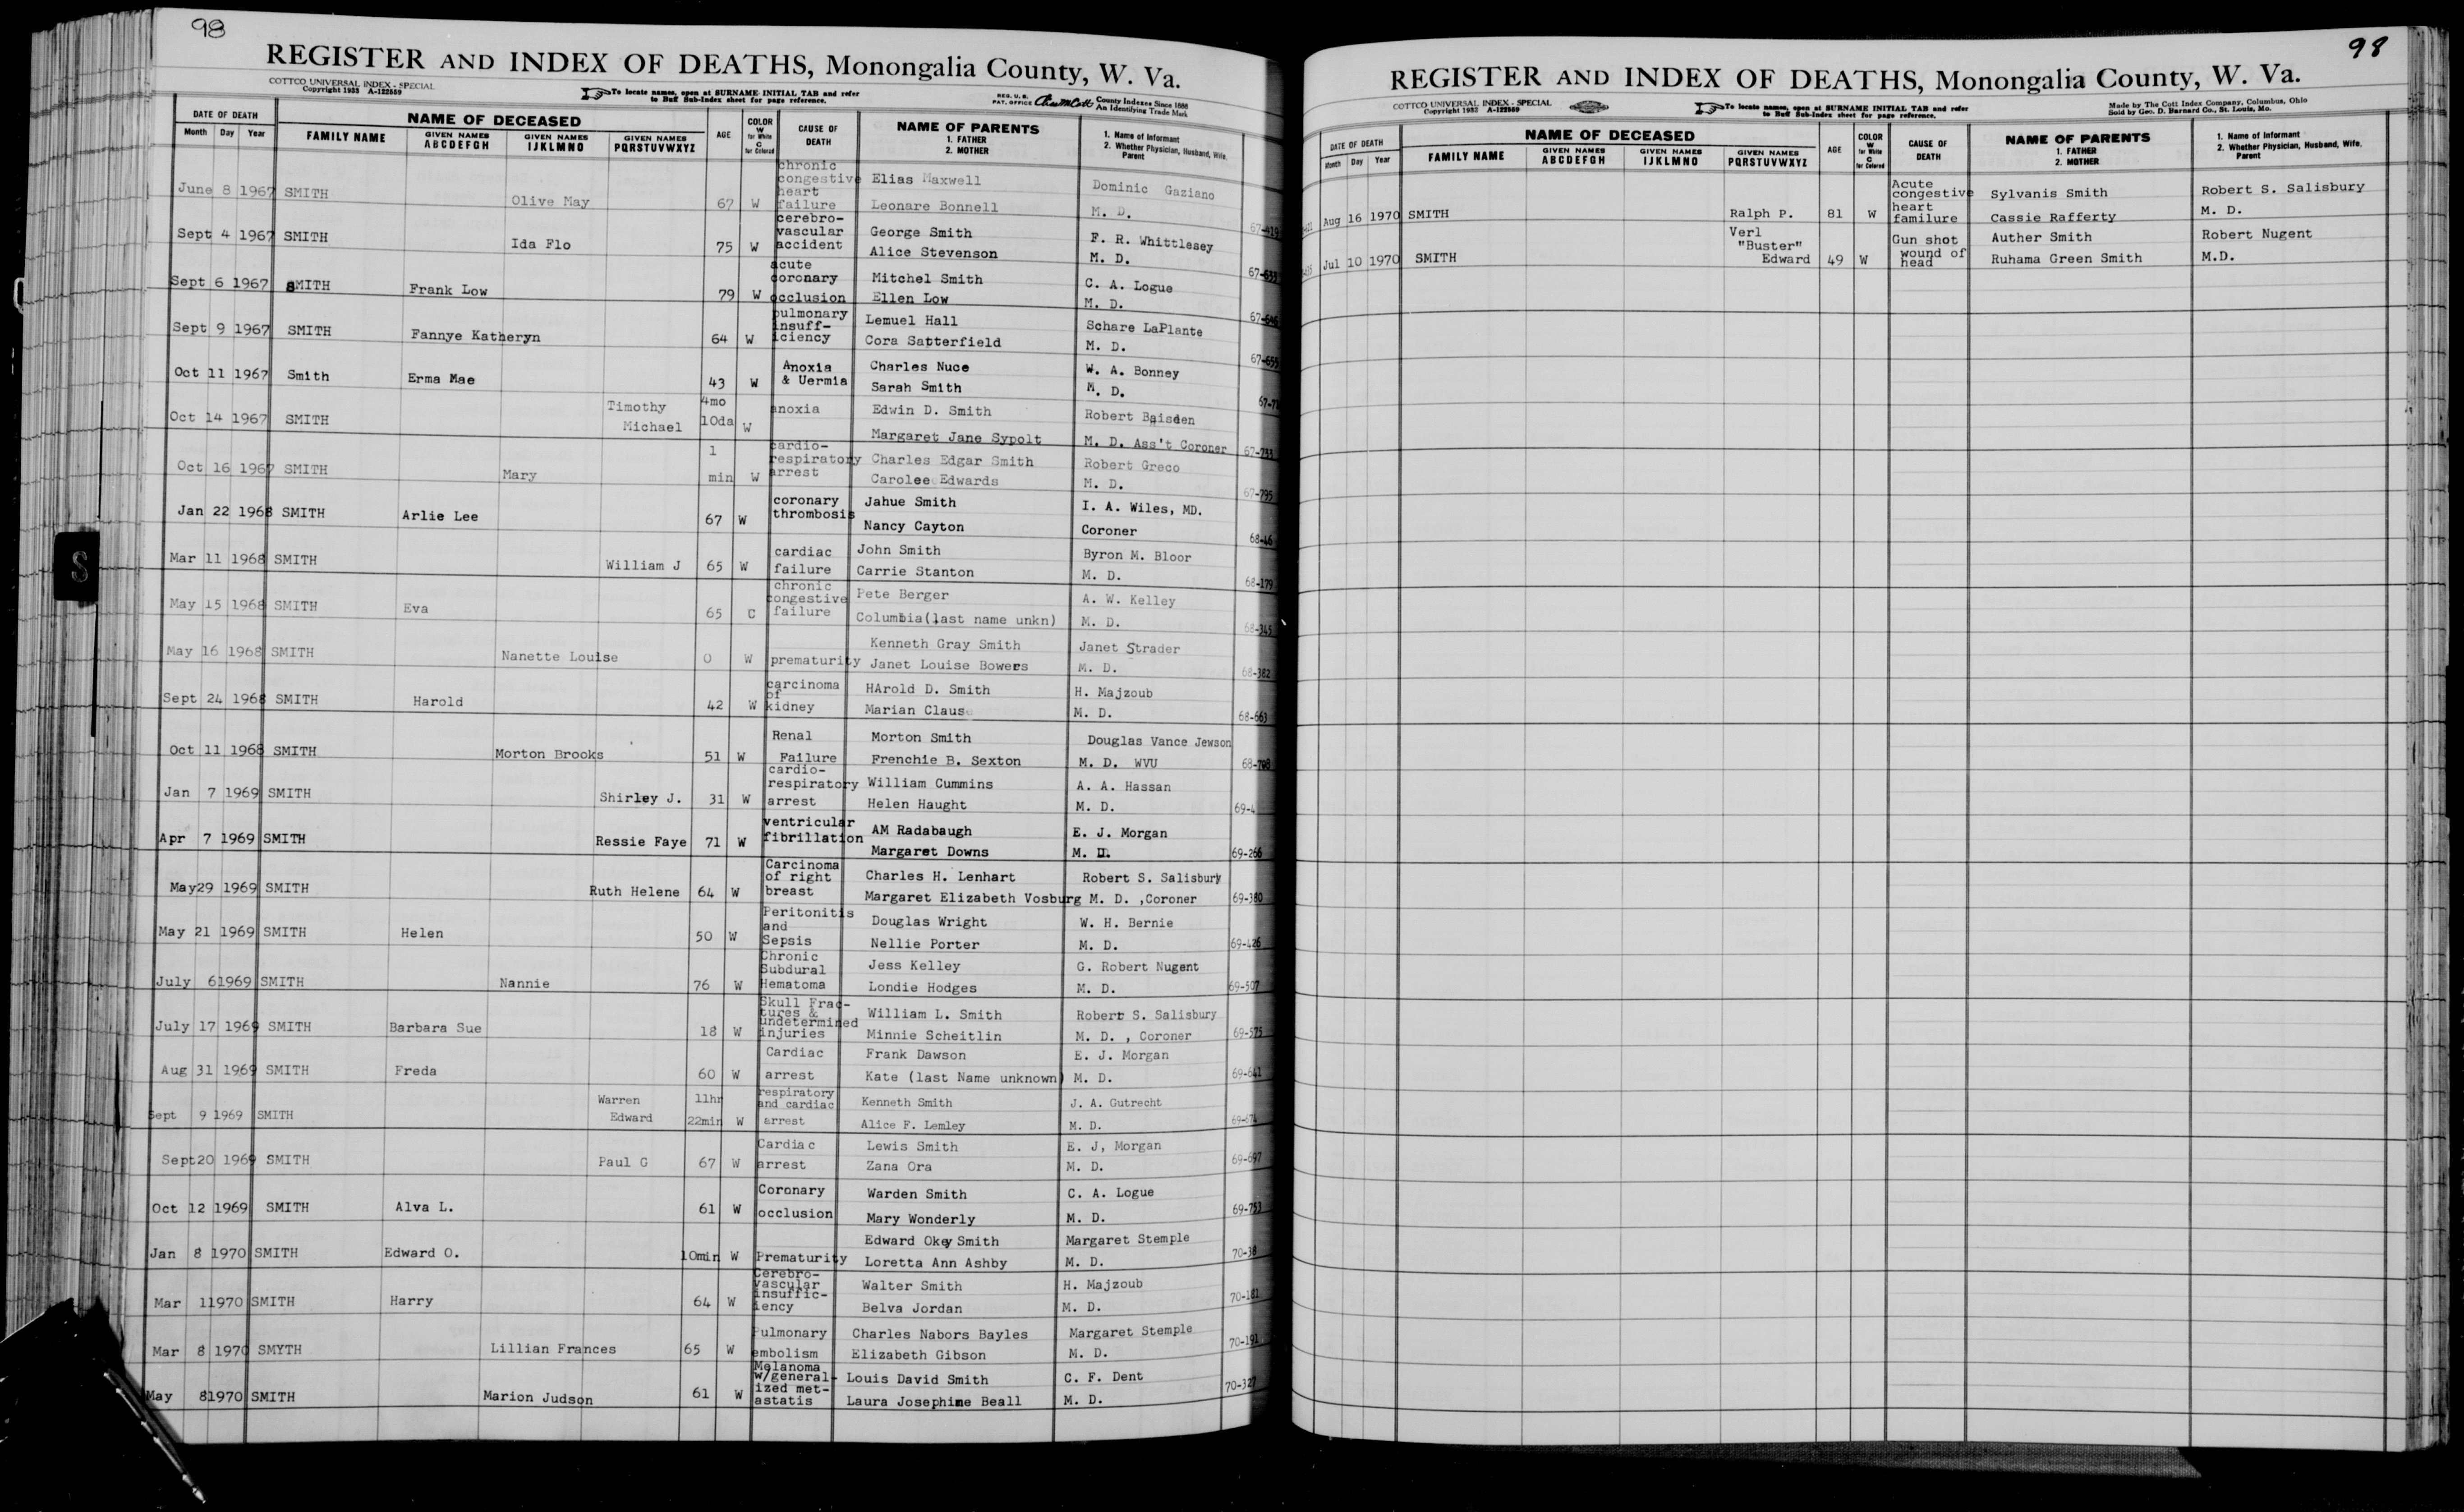 98
REGISTER AND INDEX OF DEATHS, Monongalia County, W. Va.
COTTCO UNIVERSAL INDEX - SPECIAL
Copyright 1933 A-122559
To locate names, open at SURNAME INITIAL TAB and refer
to Buff Sub-Index sheet for page reference.
REG. U. S.
PAT. OFFICE
County Indexes Since 1888
An Identifying Trade Mark
DATE OF DEATH
Month Day Year
NAME OF DECEASED
FAMILY NAME
GIVEN NAMES
ABCDEFGH
GIVEN NAMES
IJKLMNO
GIVEN NAMES
PQRSTUVWXYZ
AGE
COLOR
W
for White
C
for Colored
CAUSE OF
DEATH
NAME OF PARENTS
1. FATHER
2. MOTHER
1. Name of Informant
2. Whether Physician, Husband, Wife,
Parent
June 8 1967 SMITH Olive May 67 W chronic congestive heart failure Elias Maxwell Leonare Bonnell Dominic Gaziano M. D. 67-419
Sept 4 1967 SMITH Ida Flo 75 W cerebro-vascular accident George Smith Alice Stevenson F. R. Whittlesey M. D. 67-633
Sept 6 1967 SMITH Frank Low 79 W acute coronary occlusion Mitchel Smith Ellen Low C. A. Logue M. D. 67-646
Sept 9 1967 SMITH Fannye Katheryn 64 W pulmonary insuff-iciency Lemuel Hall Cora Satterfield Schare LaPlante M. D. 67-655
Oct 11 1967 Smith Erma Mae 43 W Anoxia & Uermia Charles Nuce Sarah Smith W. A. Bonney M. D.
Oct 14 1967 SMITH Timothy Michael 4mo 10da W anoxia Edwin D. Smith Margaret Jane Sypolt Robert Baisden M. D. Ass't Coroner 67-753
Oct 16 1967 SMITH Mary 1 min W cardio-respiratory arrest Charles Edgar Smith Carolee Edwards Robert Greco M. D. 67-795
Jan 22 1968 SMITH Arlie Lee 67 W coronary thrombosis Jahue Smith Nancy Cayton I. A. Wiles, MD. Coroner 68-46
Mar 11 1968 SMITH William J 65 W cardiac failure John Smith Carrie Stanton Byron M. Bloor M. D. 68-179
May 15 1968 SMITH Eva 65 C chronic congestive failure Pete Berger Columbia(last name unkn) A. W. Kelley M. D. 68-345
May 16 1968 SMITH Nanette Louise 0 W prematurity Kenneth Gray Smith Janet Louise Bowers Janet Strader M. D. 68-382
Sept 24 1968 SMITH Harold 42 W carcinoma of kidney HArold D. Smith Marian Claus H. Majzoub M. D. 68-663
Oct 11 1968 SMITH Morton Brooks 51 W Renal Failure Morton Smith Frenchie B. Sexton Douglas Vance Jewson M. D. WVU 68-708
Jan 7 1969 SMITH Shirley J. 31 W cardio-respiratory arrest William Cummins Helen Haught A. A. Hassan M. D. 69-4
Apr 7 1969 SMITH Ressie Faye 71 W ventricular fibrillation AM Radabaugh Margaret Downs E. J. Morgan M. D. 69-266
May29 1969 SMITH Ruth Helene 64 W Carcinoma of right breast Charles H. Lenhart Margaret Elizabeth Vosburg Robert S. Salisbury M. D. ,Coroner 69-380
May 21 1969 SMITH Helen 50 W Peritonitis and Sepsis Douglas Wright Nellie Porter W. H. Bernie M. D. 69-426
July 61969 SMITH Nannie 76 W Chronic Subdural Hematoma Jess Kelley Londie Hodges G. Robert Nugent M. D. 69-507
July 17 1969 SMITH Barbara Sue 18 W Skull Frac-tures & undetermined injuries William L. Smith Minnie Scheitlin Robert S. Salisbury M. D. , Coroner 69-575
Aug 31 1969 SMITH Freda 60 W Cardiac arrest Frank Dawson Kate (last Name unknown) E. J. Morgan M. D. 69-641
Sept 9 1969 SMITH Warren Edward 11hr 22min W respiratory and cardiac arrest Kenneth Smith Alice F. Lemley J. A. Gutrecht M. D. 69-674
Sept20 1969 SMITH Paul G 67 W Cardiac arrest Lewis Smith Zana Ora E. J, Morgan M. D. 69-697
Oct 12 1969 SMITH Alva L. 61 W Coronary occlusion Warden Smith Mary Wonderly C. A. Logue M. D. 69-753
Jan 8 1970 SMITH Edward O. 10min W Prematurity Edward Okey Smith Loretta Ann Ashby Margaret Stemple M. D. 70-38
Mar 11970 SMITH Harry 64 W Cerebro-vascular insuffic-iency Walter Smith Belva Jordan H. Majzoub M. D. 70-181
Mar 8 1970 SMYTH Lillian Frances 65 W Pulmonary embolism Charles Nabors Bayles Elizabeth Gibson Margaret Stemple M. D. 70-191
May 81970 SMITH Marion Judson 61 W Melanoma w/general-ized met-astatis Louis David Smith Laura Josephine Beall C. F. Dent M. D. 70-327
S
98
REGISTER AND INDEX OF DEATHS, Monongalia County, W. Va.
COTTCO UNIVERSAL INDEX - SPECIAL
Copyright 1933 A-122559
To locate names, open at SURNAME INITIAL TAB and refer
to Buff Sub-Index sheet for page reference.
Made by The Cott Index Company, Columbus, Ohio
Sold by Geo. D. Barnard Co., St. Louis, Mo.
DATE OF DEATH
Month Day Year
NAME OF DECEASED
FAMILY NAME
GIVEN NAMES
ABCDEFGH
GIVEN NAMES
IJKLMNO
GIVEN NAMES
PQRSTUVWXYZ
AGE
COLOR
W
for White
C
for Colored
CAUSE OF
DEATH
NAME OF PARENTS
1. FATHER
2. MOTHER
1. Name of Informant
2. Whether Physician, Husband, Wife,
Parent
Aug 16 1970 SMITH Ralph P. 81 W Acute congestive heart familure Sylvanis Smith Cassie Rafferty Robert S. Salisbury M. D.
Jul 10 1970 SMITH Verl "Buster" Edward 49 W Gun shot wound of head Auther Smith Ruhama Green Smith Robert Nugent M.D.